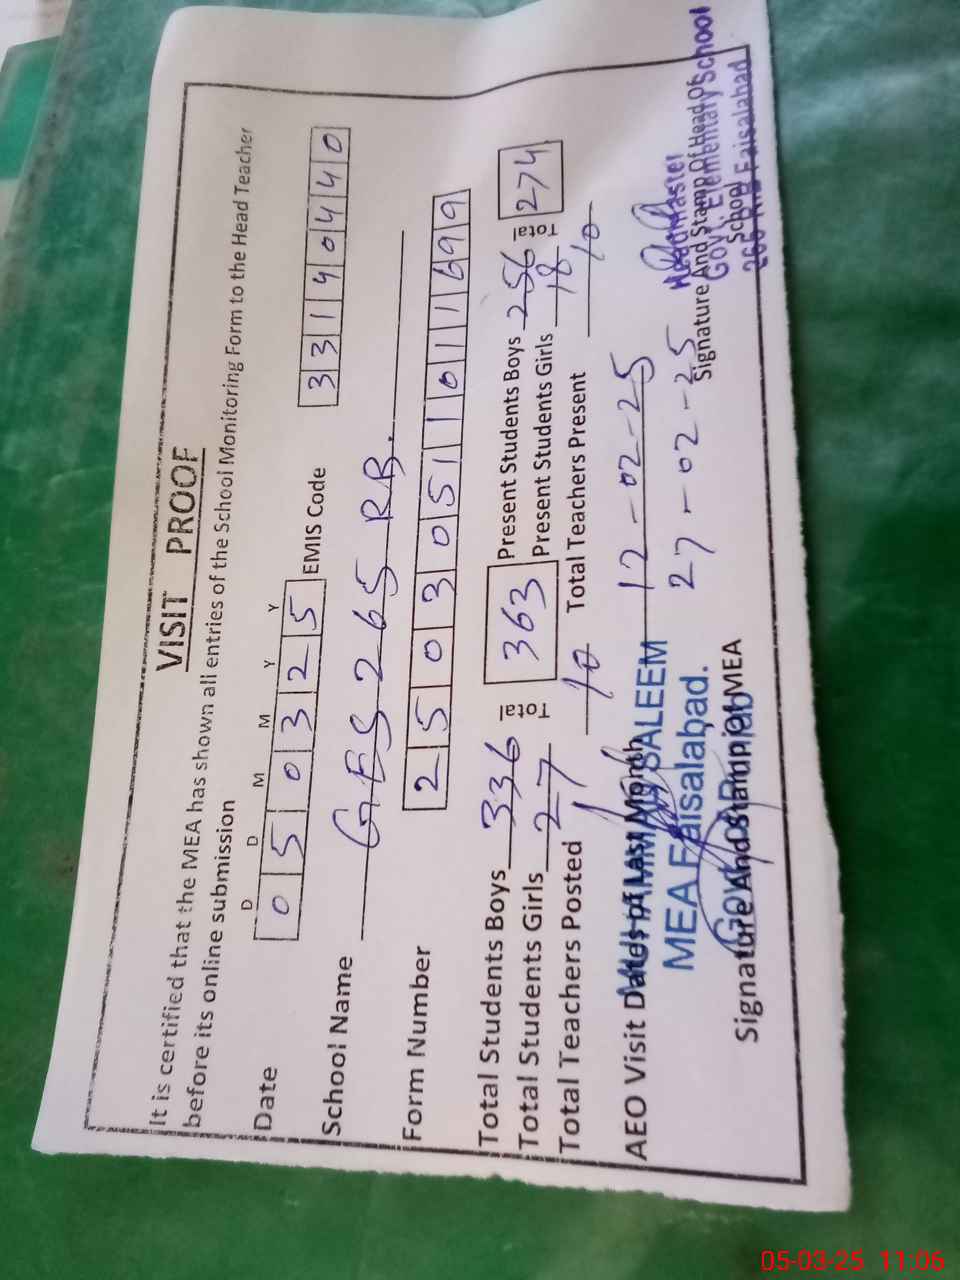 VISIT PROOF
It is certified that the MEA has shown all entries of the School Monitoring Form to the Head Teacher
before its online submission
D D M M Y Y
Date 0 5 0 3 2 5 EMIS Code 3 3 1 4 0 4 4 0
School Name GES 265 RB.
Form Number 2 5 0 3 0 5 1 1 0 1 1 6 9 9
Total Students Boys 336 Total 363 Present Students Boys 256 Total 274
Total Students Girls 27 Present Students Girls 18
Total Teachers Posted 10 Total Teachers Present 10
AEO Visit Dates of Last Month 12-02-25
27-02-25
SALEEM
MEA Faisalabad.
Signature And Stamp of MEA
Headmaster
Govt. Elementary School
Faisalabad
Signature And Stamp Of Head Of
School
05-03-25 11:06